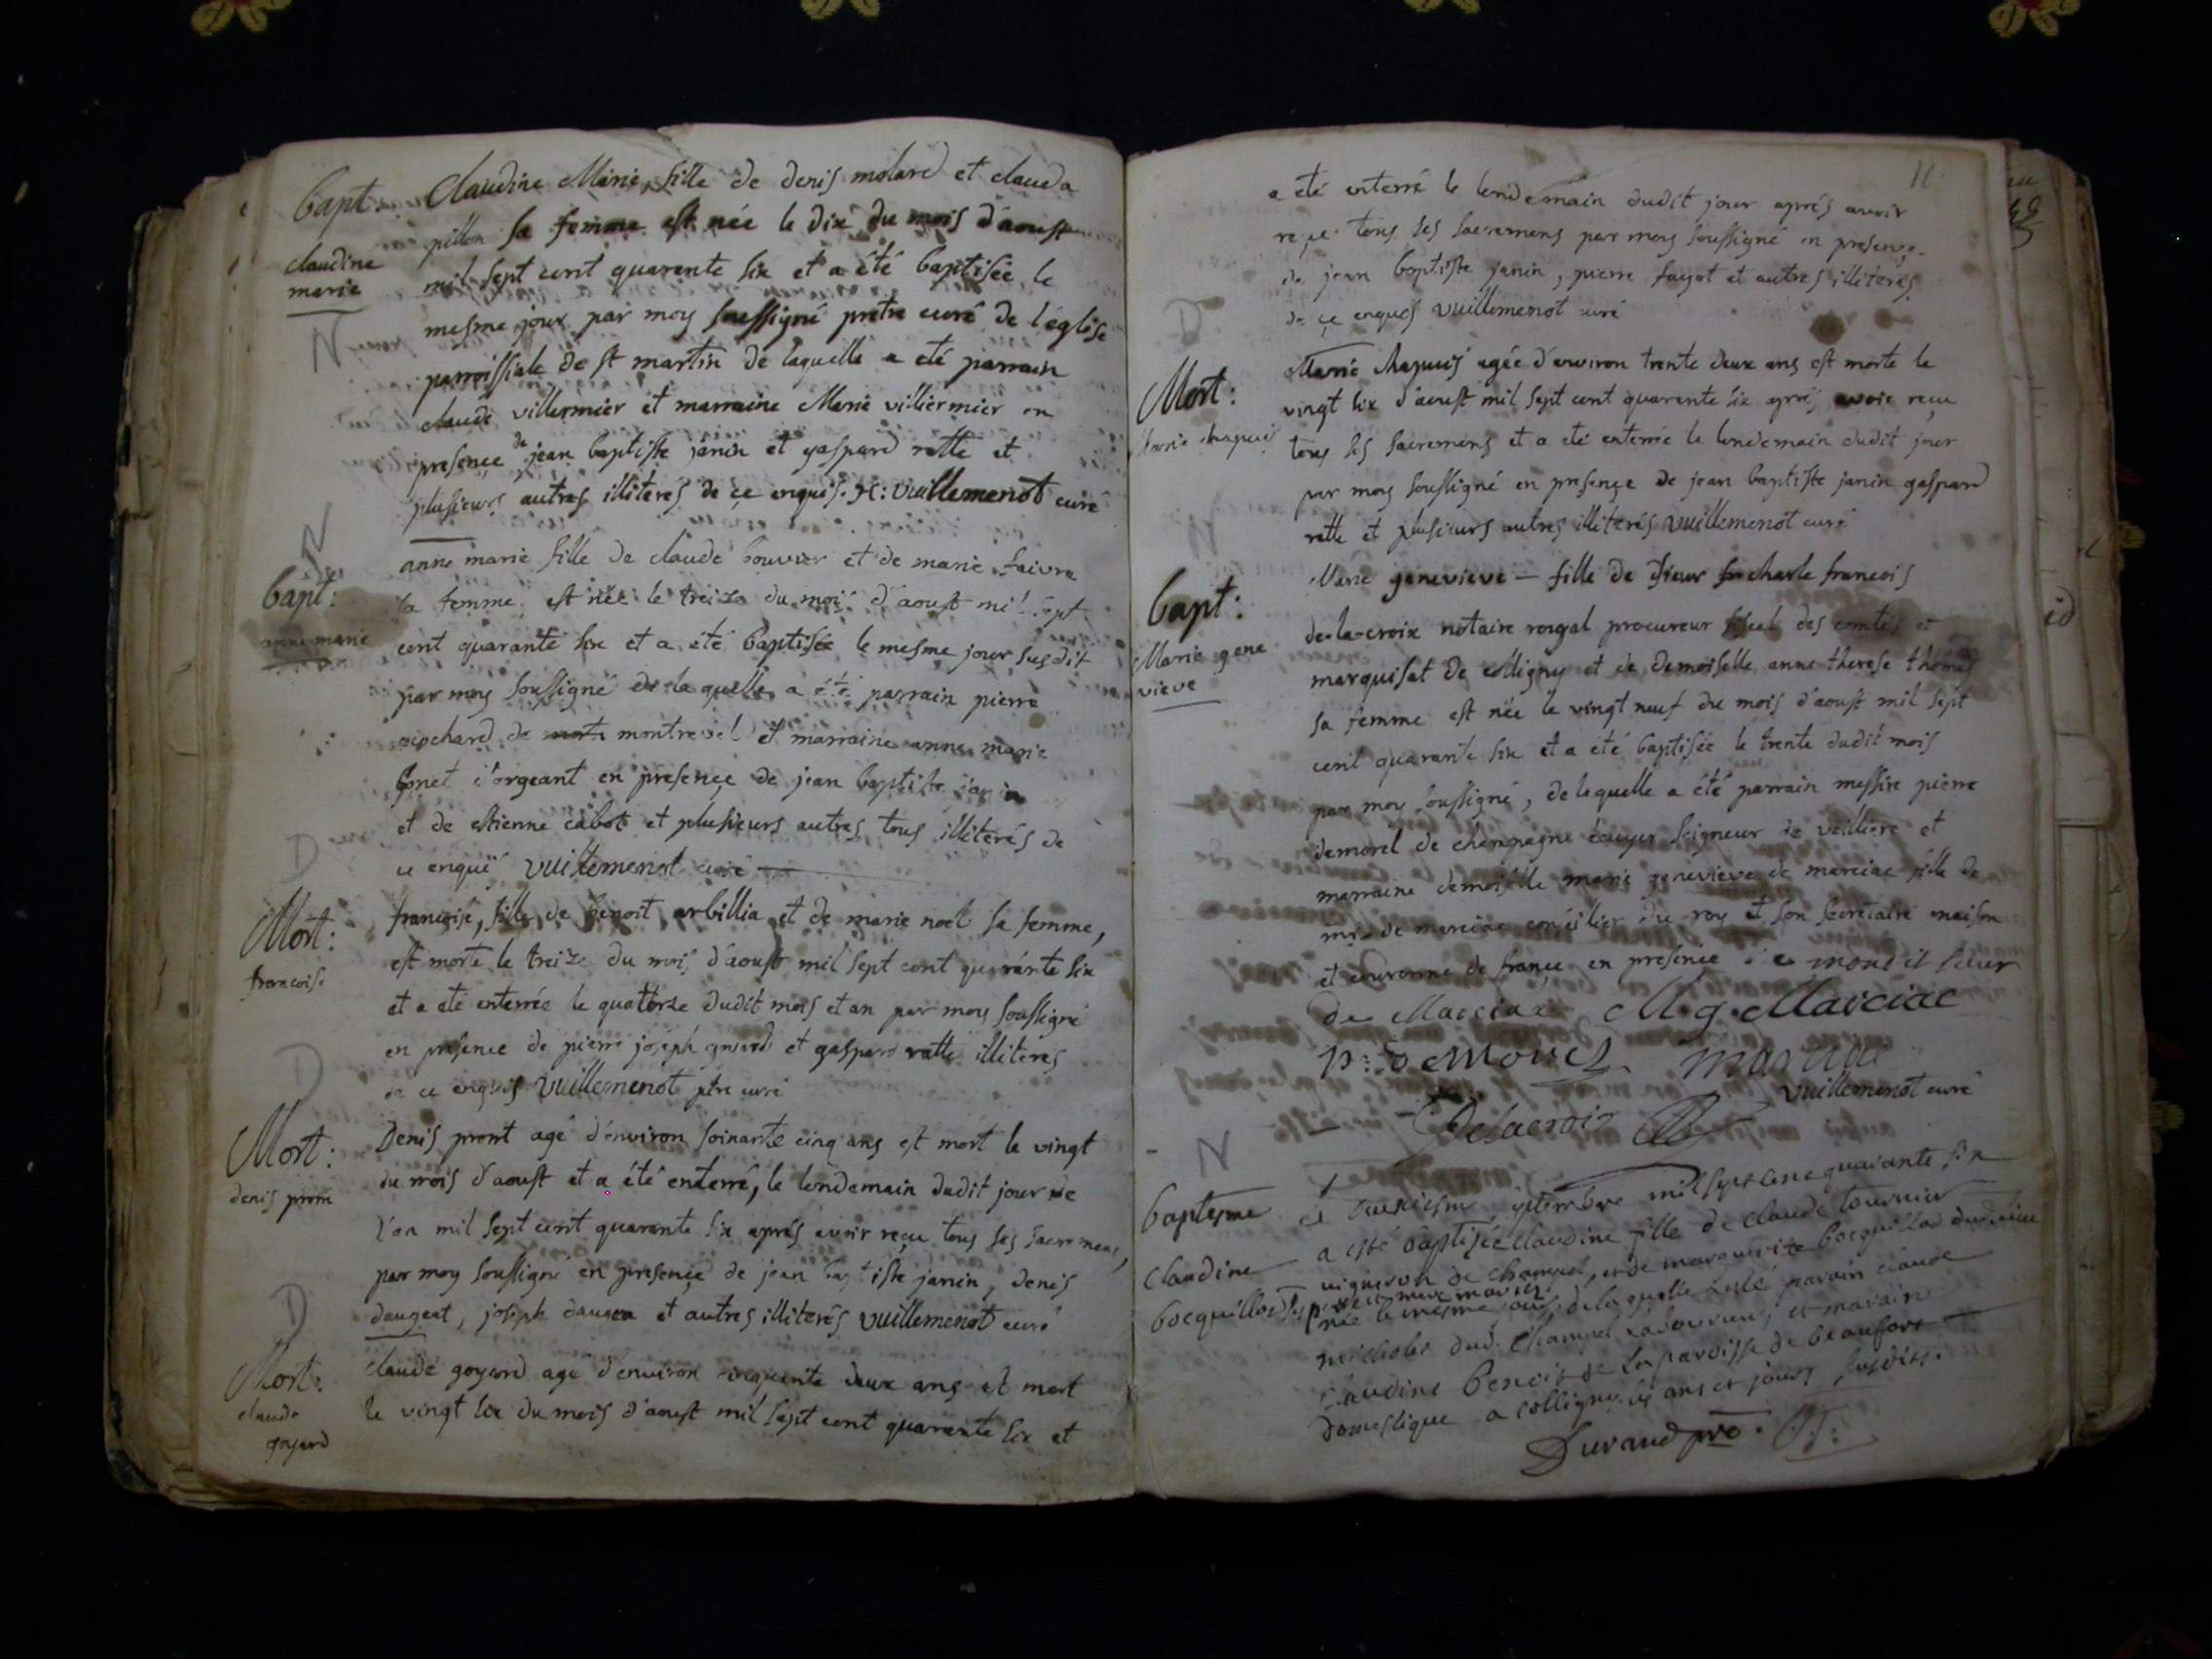 Bapt: Claudine Marie, fille de denis molard et clauda
claudine pillon sa femme est née le dix du mois d'aoust
marie mil sept cent quarente six et a été baptisée le
N mesme jour par moy soussigné prêtre curé de l'église
paroissiale de st martin de laquelle a eté parrain
claude villermier et marraine Marie villiermier en
presençe de jean baptiste janin et gaspard ratte et
plusieurs autres illiteres de çe enquis. vuillemenot curé
N
Bapt: anne marie fille de claude bouvier et de marie faivre
anne marie sa femme est née le treize du mois d'aoust mil sept
cent quarante six et a été baptisée le mesme jour susdit
par moy soussigné de la quelle a été parrain pierre
de montrevel et marraine anne marie
d'orgeant en presençe de jean baptiste janin
et de estienne cabot et plusieurs autres tous illiterés de
D ce enquis vuillemenot curé
Mort: françoise, fille de benoit arbillia et de marie noel sa femme,
francoise est morte le treize du mois d'aoust mil sept cent quarante six
et a eté enterrée le quattorze dudit mois et an par moy soussigné
D en presence de pierre joseph et gaspard ratte illiteres
de ce enquis vuillemenot ptre curé
Mort: Denis pront agé d'environ soixante cinq ans est mort le vingt
denis prom du mois d'aoust et a été enterré, le lendemain dudit jour de
l'an mil sept cent quarante six aprés avoir reçu tous ses sacremens,
par moy soussigné en presençe de jean baptiste janin, denis
D daugeat, joseph et autres illiterés vuillemenot curé
Mort: claude goyard agé d'environ cinquante deux ans est mort
claude le vingt six du mois d'aoust mil sept cent quarante six et
goyard
11
a eté enterré le lendemain dudit jour aprés avoir
reçu tous ses sacremens par moy soussigné en presençe
de jean baptiste janin, pierre fayot et autres illiteres
D de çe enquos vuillemenot curé
Mort: Marie chapuis agée d'environ trente deux ans est morte le
vingt six d'aoust mil sept cent quarante six aprés avoir reçu
Marie chapuis tous ses sacremens et a eté enterrée le lendemain dudit jour
par moy soussigné en presençe de jean baptiste janin gaspard
N ratte et plusieurs autres illiterés vuillemenot curé
Bapt: Marie genevieve — fille de sieur charle francois
de-la-croix notaire royal procureur fiscal des comtés et
Marie gene marquisat de colligny et de demoiselle anne therese thomas
vieve sa femme est née le vingt neuf du mois d'aoust mil sept
cent quarante six et a été baptisée le trente dudit mois
par moy soussigné, de lequelle a été parrain messire pierre
demorel de champagne écuyer seigneur de et
marraine demoiselle marie genevieve de marciac fille de
mr de marciac conseilier du roy et son secretaire maison
et couronne de françe en presence de mond it sieur
de Marciac M. g. Marciac
p: Demorel
vuillemenot curé
Delacroix
N
baptesme septembre mil sept cent quarante six
Claudine a esté baptisée claudine fille de claude tournier
bocquillod vigneron de charnod, et de marguerite bocquillod dudit lieu
ses pere et mere mariés
née le mesme jour, de laquelle a esté parain claude
dud. laboureur, et maraine
claudine benoit de la paroisse de beaufort
domestique a colligny les ans et jours susdits.
Durand pre